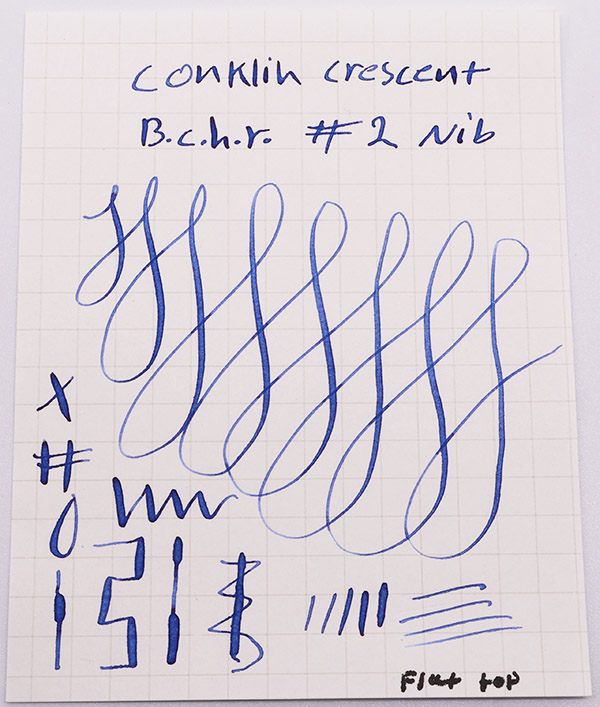 Conklin Crescent
B.c.h.r. #2 Nib
X
#
0
Flat top